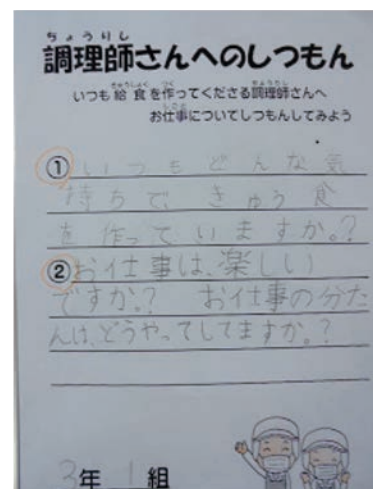 ちょうりし
調理師さんへのしつもん
きゅうしょく つく ちょうりし
いつも給食を作ってくださる調理師さんへ
しごと
お仕事についてしつもんしてみよう
① いつもどんな気
持ちで、きゅう食
を作っていますか。?
② お仕事は、楽しい
ですか。? お仕事の分た
んは、どうやってしてますか。?
3年 1組